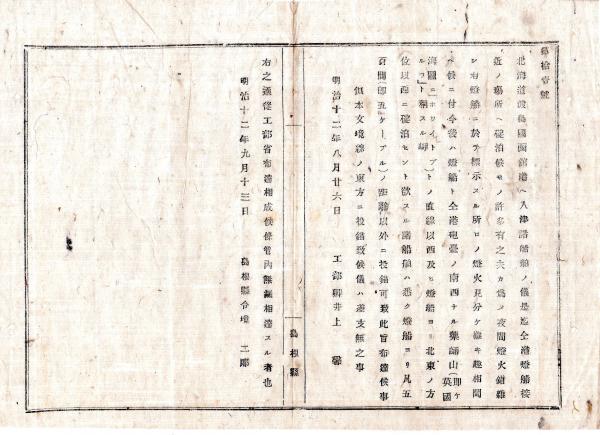 島拾壹號
北海道渡島國函館港ヘ入津諸船舶ノ儀是迄仝港燈船接
近ノ場所ヘ碇泊候モノ許多有之夫カ爲メ夜間燈火錯雜
シ右燈船ニ於テ標示スル所ロノ燈火見分ケ難キ趣相聞
ヘ候ニ付今後ハ燈船ト仝港砲臺ノ南西ナル藥師山(即ケ英國
海圖ニホワイトブルフト稱スル岬)トノ直線以西及ヒ燈船ヨリ北東ノ方
位以西ニ碇泊セント欲スル諸船舶ハ悉ク燈船ヨリ凡五
百間(即五ケーブル)ノ距離以外ニ投錨可致此旨布達候事
但本文境線ノ東方ニ投錨致候儀ハ差支無之事
明治十二年八月廿六日 工部卿井上 馨
右之通從工部省布達相成候條管内無漏相達スル者也
明治十二年九月十三日 島根縣令境 二郎
島根縣